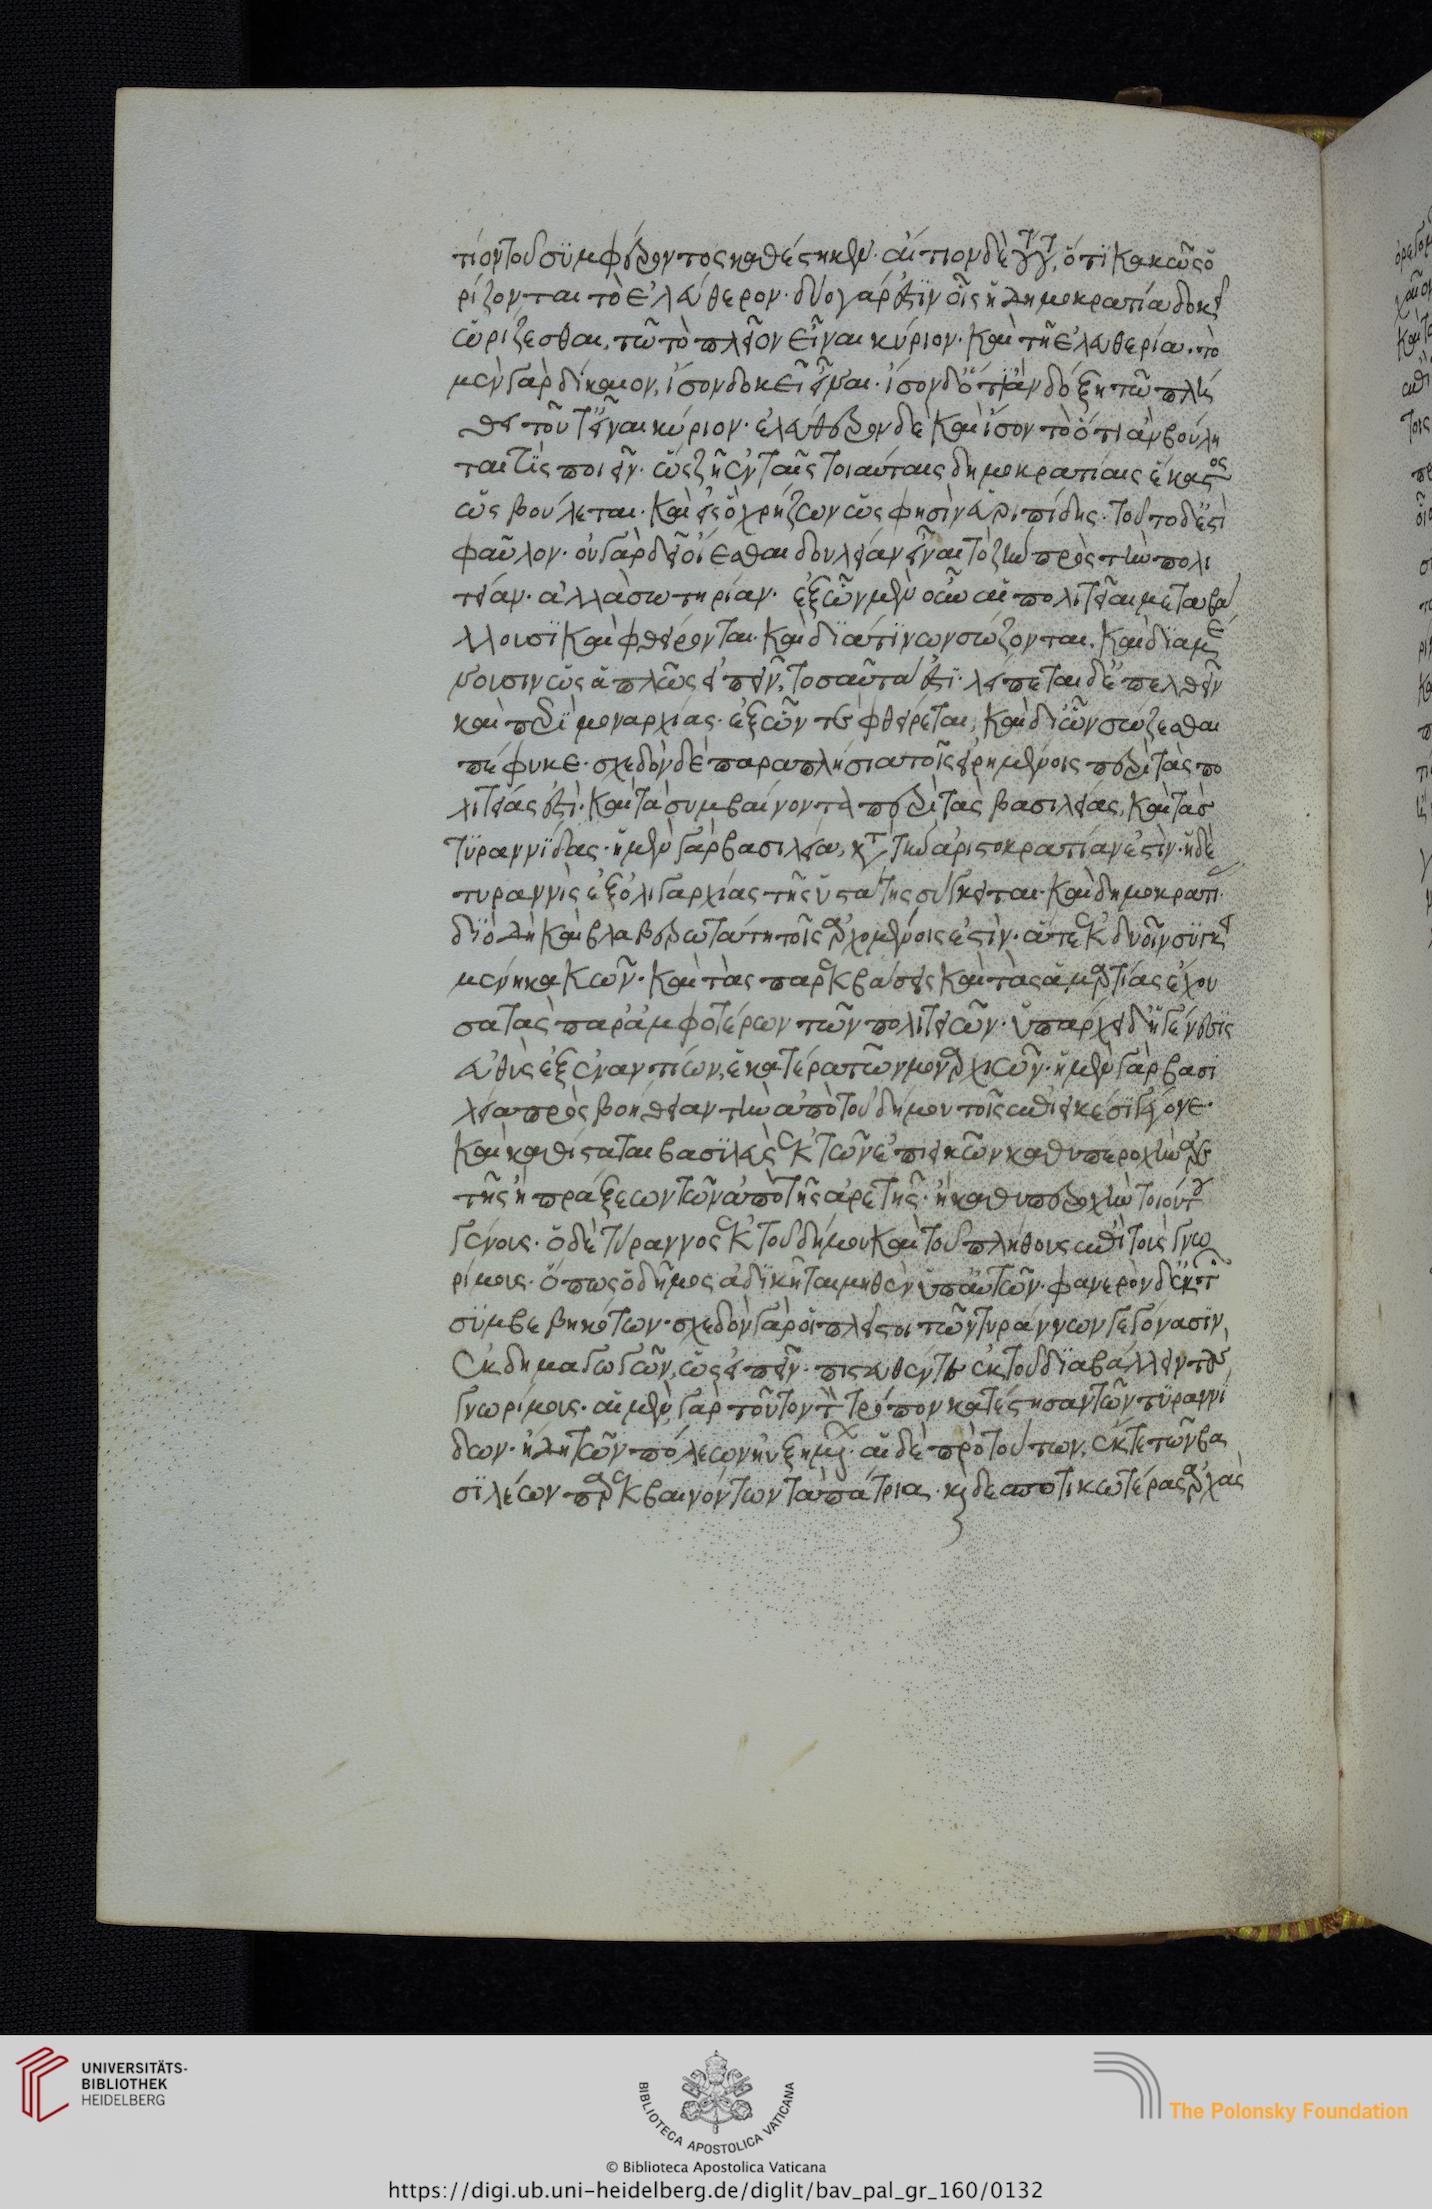 τίον τοῦ συμφέροντος καθέστηκεν. αἴτιον δὲ τούτου, ὅτι κακῶς ὁ
ρίζονται τὸ ἐλεύθερον. δύο γάρ ἐστιν οἷς ἡ δημοκρατία δοκεῖ
ὡρίζεσθαι, τῶ τὸ πλεῖον εἶναι κύριον. καὶ τῆ ἐλευθερία. τὸ
μὲν γὰρ δίκαιον, ἴσον δοκεῖ εἶναι. ἴσον δ' ὅτι ἂν δόξη τῶ πλή
θει τοῦτ' εἶναι κύριον. ἐλεύθερον δὲ καὶ ἴσον τὸ ὅτι ἂν βούλη
ταί τις ποιεῖν. ὥστε ζῆ ἐν ταῖς τοιαύταις δημοκρατίαις ἕκαστος
ὡς βούλεται. καὶ εἰς ὃ χρήζων ὥς φησὶν εὐριπίδης. τοῦτο δ' ἐστὶ
φαῦλον. οὐ γὰρ δεῖ οἴεσθαι δουλείαν εἶναι τὸ ζῆν πρὸς τὴν πολι
τείαν. ἀλλὰ σωτηρίαν. ἐξ ὧν μὲν οὖν αἱ πολιτεῖαι μεταβά
λλουσι καὶ φθείρονται. καὶ διὰ τίνων σώζονται. καὶ διαμέ
νουσιν ὡς ἁπλῶς εἰπεῖν, τοσαῦτά ἐστι. λείπεται δ' ἐπελθεῖν
καὶ περὶ μοναρχίας. ἐξ ὧν τε φθείρεται, καὶ δι' ὧν σώζεσθαι
πέφυκε. σχεδὸν δὲ παραπλήσια τοῖς εἰρημένοις περὶ τὰς πο
λιτείας ἐστὶ. καὶ τὰ συμβαίνοντα περὶ τὰς βασιλείας, καὶ τὰς
τυραννίδας. ἡ μὲν γὰρ βασιλεία, κατὰ τὴν ἀριστοκρατίαν ἐστίν. ἡ δὲ
τυραννὶς ἐξ ὀλιγαρχίας τῆς ὑστάτης σύγκειται. καὶ δημοκρατί
διὸ δὴ καὶ βλαβερωτάτη τοῖς ἀρχομένοις ἐστίν. ἅτε ἐκ δυοῖν συγκει
μένη κακῶν. καὶ τὰς παρεκβάσεις καὶ τὰς ἁμαρτίας ἔχου
σα τὰς παρ' ἀμφοτέρων τῶν πολιτειῶν. ὑπάρχει δ' ἡ γένεσις
εὐθὺς ἐξ ἐναντίων, ἑκατέρα τῶν μοναρχιῶν. ἡ μὲν γὰρ βασι
λεία πρὸς βοήθειαν τὴν ἀπὸ τοῦ δήμου τοῖς ἐπιεικέσι γέγονε.
καὶ καθίσταται βασιλεὺς ἐκ τῶν ἐπιεικῶν καθ' ὑπεροχὴν ἀρε
τῆς ἢ πράξεων τῶν ἀπὸ τῆς ἀρετῆς. ἢ καθ' ὑπεροχὴν τοιούτου
γένους. ὁ δὲ τύραννος ἐκ τοῦ δήμου καὶ τοῦ πλήθους ἐπὶ τοὺς γνω
ρίμους. ὅπως ὁ δῆμος ἀδικῆται μηθὲν ὑπ' αὐτῶν. φανερὸν δ' ἐκ τῶν
συμβεβηκότων. σχεδὸν γὰρ οἱ πλεῖστοι τῶν τυράννων γεγόνασιν,
ἐκ δημαγωγῶν, ὡς εἰπεῖν. πιστευθέντες ἐκ τοῦ διαβάλλειν τοὺς
γνωρίμους. αἱ μὲν γὰρ τοῦτον τὸν τρόπον κατέστησαν τῶν τυραννί
δων. ἤδη τῶν πόλεων ηὐξημένων. αἱ δὲ πρὸ τούτων, ἔκ τε τῶν βα
σιλέων παρεκβαινόντων τὰ πάτρια. καὶ δεσποτικωτέρας ἀρχὰς
UNIVERSITÄTS-
BIBLIOTHEK
HEIDELBERG
BIBLIOTECA APOSTOLICA VATICANA
The Polonsky Foundation
© Biblioteca Apostolica Vaticana
https://digi.ub.uni-heidelberg.de/diglit/bav_pal_gr_160/0132